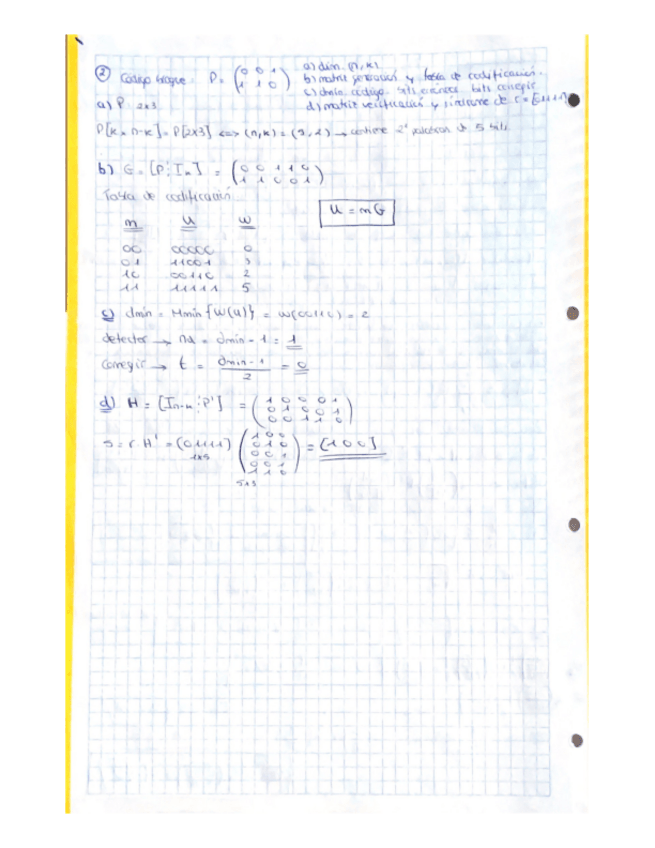 ② Código bloque: P = (0 0 1 / 1 1 0)
a) dim. (n, k)
b) matriz generación y tabla de codificación.
c) dmin código. bits errores bits corregir
d) matriz verificación y síndrome de r = [01111]
a) P 2x3
P[k x n-k] = P[2x3] <=> (n, k) = (5, 2) → contiene 2² palabras de 5 bits
b) G = [P ⋮ Iₖ] = (0 0 1 1 0 / 1 1 0 0 1)
Tabla de codificación
U = mG
m U w
00 00000 0
01 11001 3
10 00110 2
11 11111 5
c) dmin = Mmin {W(U)} = w(00110) = 2
detectar → nd = dmin - 1 = 1
corregir → t = dmin - 1 / 2 = 0
d) H = [In-k ⋮ P'] = (1 0 0 0 1 / 0 1 0 0 1 / 0 0 1 1 0)
S = r H' = (01111) (1 0 0 / 0 1 0 / 0 0 1 / 0 0 1 / 1 1 0) = [100]
1x5
5x3